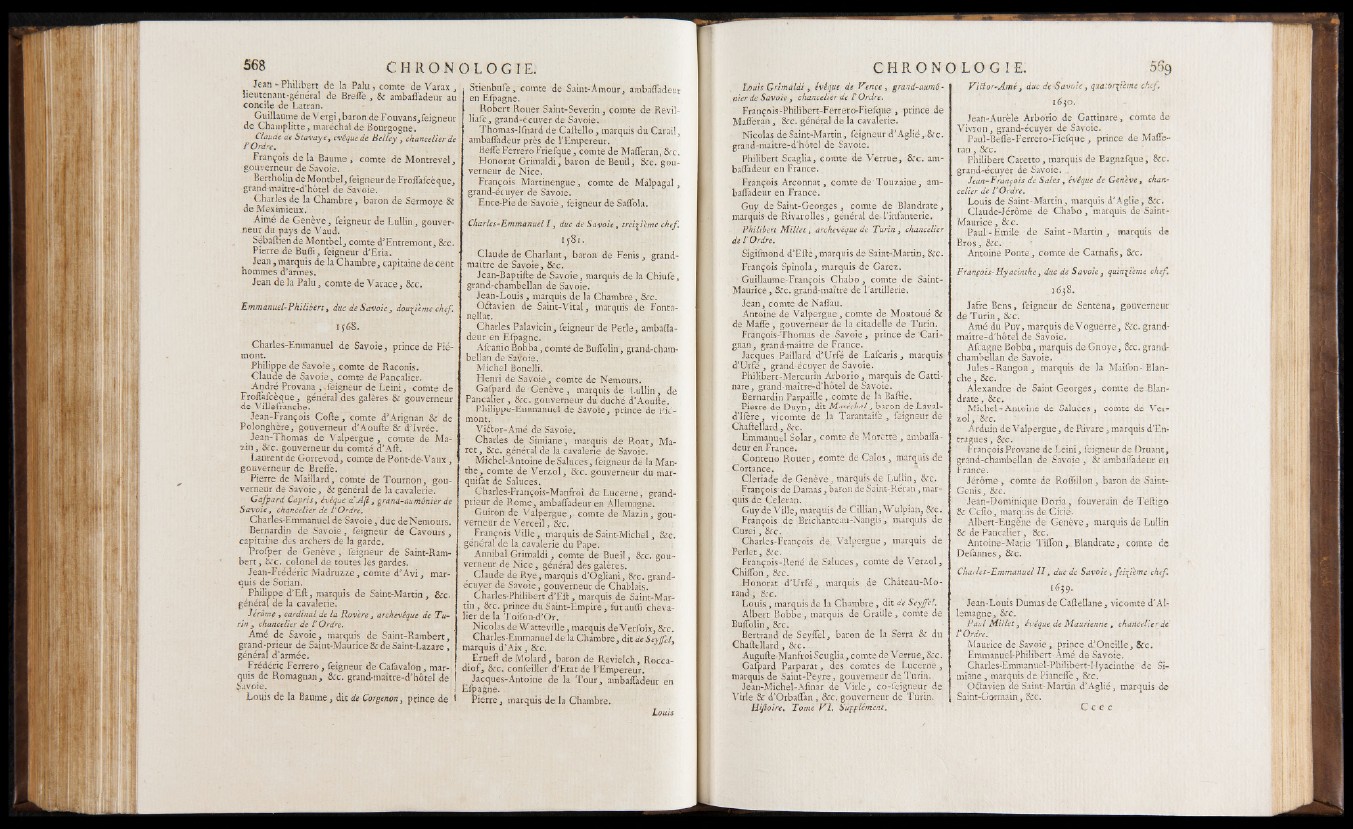 568 CHRONOLOGIE.
Jean-Philibert de la Palu, comte de Varax,
lieutenant-général de Bresse, & ambassadeur au
concile de Latran.
Guillaume de Vergi, baron de Fouvans, seigneur
de Champlitte, maréchal de Bourgogne.
Claude de Stavaye, évêque de Belley, chancelier de
l'Ordre.
François de la Baume, comte de Montrevel,
gouverneur de Savoie.
Bertholin de Montbel, seigneur de Frossascèque,
grand-maître-d'hôtel de Savoie.
Charles de la Chambre, baron de Sermoye &
de Meximieux.
Aimé de Genève, seigneur de Lullin, gouver-
neur du pays de Vaud.
Sébastien de Montbel, comte d'Entremont, &c.
Pierre de Bussi, seigneur d'Eria.
Jean, marquis de la Chambre, capitaine de cent
hommes d'armes.
Jean de la Palu, comte de Varace, &c.
Emmanuel-Philibert, duc de Savoie, douzième chef.
1568.
Charles-Emmanuel de Savoie, prince de Pié-
mont.
Philippe de Savoie, comte de Raconis.
Claude de Savoie, comte de Pancalier.
André Provana, seigneur de Leini, comte de
Frossascèque, général des galères & gouverneur
de Villefranche.
Jean-François Coste, comte d'Arignan & de
Polonghère, gouverneur d'Aouste & d'Ivrée.
Jean-Thomas de Valpergue, comte de Ma-
zin, &c. gouverneur du comté d'Ast.
Laurent de Gorrevod, comte de Pont-de-Vaux,
gouverneur de Bresse.
Pierre de Maillard, comte de Tournon, gou-
verneur de Savoie, & général de la cavalerie.
Gaspard Capris, évêque d'Ast, grand-aumônier de
Savoie, chancelier de l'Ordre.
Charles-Emmanuel de Savoie, duc de Nemours.
Bernardin de Savoie, seigneur de Cavours,
capitaine des archers de la garde.
Prosper de Genève, seigneur de Saint-Ram-
bert, &c. colonel de toutes les gardes.
Jean-Frédéric Madruzze, comte d'Avi, mar-
quis de Sorian.
Philippe d'Est, marquis de Saint-Martin, &c.
général de la cavalerie.
Jérôme, cardinal de la Rovère, archevêque de Tu-
rin, chancelier de l'Ordre.
Amé de Savoie, marquis de Saint-Rambert,
grand-prieur de Saint-Maurice & de Saint-Lazare,
général d'armée.
Frédéric Ferrero, seigneur de Casavalon, mar-
quis de Romagnan, &c. grand-maître-d'hôtel de
Savoie.
Louis de la Baume, dit de Corgenon, prince de
Stienhuse, comte de Saint-Amour, ambassadeur
en Espagne.
Robert Rouer Saint-Severin, comte de Revil-
liasc, grand-écuyer de Savoie.
Thomas-Isnard de Castello, marquis du Carail,
ambassadeur près de l'Empereur.
Besse Ferrero Friesque, comte de Masseran, &c.
Honorat Grimaldi, baron de Beuil, &c. gou-
verneur de Nice.
François Martinengue, comte de Malpagal,
grand-écuyer de Savoie.
Ence-Pie de Savoie, seigneur de Sassola.
Charles-Emmanuel I, duc de Savoie, treizième chef.
1581.
Claude de Charlant, baron de Fenis, grand-
maître de Savoie, &c.
Jean-Baptiste de Savoie, marquis de la Chiuse,
grand-chambellan de Savoie.
Jean-Louis, marquis de la Chambre, &c.
Octavien de Saint-Vital, marquis de Fonta-
nellat.
Charles Palavicin, seigneur de Perle, ambassa-
deur en Espagne.
Ascanio Bobba, comte de Bussolin, grand-cham-
bellan de Savoie.
Michel Bonelli.
Henri de Savoie, comte de Nemours.
Gaspard de Genève, marquis de Lullin, de
Pancalier, &c. gouverneur du duché d'Aouste.
Philippe-Emmanuel de Savoie, prince de Pié-
mont.
Victor-Amé de Savoie.
Charles de Simiane, marquis de Roat, Ma-
ret, &c. général de la cavalerie de Savoie.
Michel-Antoine de Saluces, seigneur de la Man-
the, comte de Verzol, &c. gouverneur du mar-
quisat de Saluces.
Charles-François-Manfroi de Lucerne, grand-
prieur de Rome, ambassadeur en Allemagne.
Guiron de Valpergue, comte de Mazin, gou-
verneur de Verceil, &c.
François Ville, marquis de Saint-Michel, &c.
général de la cavalerie du Pape.
Annibal Grimaldi, comte de Bueil, &c. gou-
verneur de Nice, général des galères.
Claude de Rye, marquis d'Ogliani, &c. grand-
écuyer de Savoie, gouverneur de Chablais.
Charles-Philibert d'Est, marquis de Saint-Mar-
tin, &c. prince du Saint-Empire, fut aussi cheva-
lier de la Toison-d'Or.
Nicolas de Watteville, marquis de Versoix, &c.
Charles-Emmanuel de la Chambre, dit de Seyssel,
marquis d'Aix, &c.
Ernest de Molard, baron de Revielch, Rocca-
diof, &c. conseiller d'Etat de l'Empereur.
Jacques-Antoine de la Tour, ambassadeur en
Espagne.
Pierre, marquis de la Chambre.
Louis
CHRONOLOGIE. 569
Louis Grimaldi, évêque de Vence, grand-aumô-
nier de Savoie, chancelier de l'Ordre.
François-Philibert-Ferrero-Fiesque, prince de
Masseran, &c. général de la cavalerie.
Nicolas de Saint-Martin, seigneur d'Aglié, &c.
grand-maitre-d'hôtel de Savoie.
Philibert Scaglia, comte de Verrue, &c. am-
bassadeur en France.
François Arconnat, comte de Touzaine, am-
bassadeur en France.
Guy de Saint-Georges, comte de Blandrate,
marquis de Rivarolles, général de l'infanterie.
Philibert Millet, archevêque de Turin, chancelier
de l'Ordre.
Sigismond d'Este, marquis de Saint-Martin, &c.
François Spinola, marquis de Garez.
Guillaume-François Chabo, comte de Saint-
Maurice, &c. grand-maître de l'artillerie.
Jean, comte de Nassau.
Antoine de Valpergue, comte de Montoué &
de Masse, gouverneur de la citadelle de Turin.
François-Thomas de Savoie, prince de Cari-
gnan, grand-maître de France.
Jacques Paillard d'Urfé de Lascaris, marquis
d'Urfé, grand écuyer de Savoie.
Philibert-Mercurin Arborio, marquis de Gatti-
nare, grand-maître-d'hôtel de Savoie.
Bernardin Parpaille, comte de la Bastie.
Pierre de Duyn, dit Maréchal, baron de Laval-
d'Isère, vicomte de la Tarantaise, seigneur de
Chastellard, &c.
Emmanuel Solar, comte de Morette, ambassa-
deur en France.
Conteno Rouer, comte de Calos, marquis de
Cortance.
Cleriade de Genève, marquis de Lullin, &c.
François de Damas, baron de Saint-Réran, mar-
quis de Celeran.
Guy de Ville, marquis de Cillian, Wulpian, &c.
François de Brichanteau-Nangis, marquis de
Curei, &c.
Charles-François de Valpergue, marquis de
Perlet, &c.
François-René de Saluces, comte de Verzol,
Chiffon, &c.
Honorat d'Urfé, marquis de Château-Mo-
rand, &c.
Louis, marquis de la Chambre, dit de Seyssel.
Albert Bobbe, marquis de Graille, comte de
Bussolin, &c.
Bertrand de Seyssel, baron de la Serra & du
Chastellard, &c.
Auguste-Manfroi Scuglia, comte de Verrue, &c.
Gaspard Parparat, des comtes de Lucerne,
marquis de Saint-Peyre, gouverneur de Turin.
Jean-Michel-Asinar de Virle, co-seigneur de
Virle & d'Orbassan, &c. gouverneur de Turin.
Histoire. Tome VI. Supplément.
Victor-Amé, duc de Savoie, quatorzième chef.
1630.
Jean-Aurèle Arborio de Gattinare, comte de
Vivron, grand-écuyer de Savoie.
Paul-Besse-Ferrero-Fiesque, prince de Masse-
ran, &c.
Philibert Caretto, marquis de Bagnasque, &c.
grand-écuyer de Savoie.
Jean-François de Sales, évêque de Genève, chan-
celier de l'Ordre.
Louis de Saint-Martin, marquis d'Aglie, &c.
Claude-Jérôme de Chabo, marquis de Saint-
Maurice, &c.
Paul-Emile de Saint-Martin, marquis de
Bros, &c.
Antoine Ponte, comte de Carnafis, &c.
François-Hyacinthe, duc de Savoie, quinzième chef.
1638.
Jafre Bens, seigneur de Sentena, gouverneur
de Turin, &c.
Amé du Puy, marquis de Voguerre, &c. grand-
maître-d'hôtel de Savoie.
Ascagne Bobba, marquis de Groye, &c. grand-
chambellan de Savoie.
Jules-Rangon, marquis de la Maison-Blan-
che, &c.
Alexandre de Saint Georges, comte de Blan-
drate, &c.
Michel-Antoine de Saluces, comte de Ver-
zol, &c.
Arduin de Valpergue, de Rivare, marquis d'En-
tragues, &c.
François Provane de Leini, seigneur de Druant,
grand-chambellan de Savoie, & ambassadeur en
France.
Jérôme, comte de Rossillon, baron de Saint-
Genis, &c.
Jean-Dominique Doria, souverain de Testigo
& Cesio, marquis de Cirié.
Albert-Eugène de Genève, marquis de Lullin
& de Pancalier, &c.
Antoine-Marie Tisson, Blandrate, comte de
Desannes, &c.
Charles-Emmanuel II, duc de Savoie, seizième chef.
1639.
Jean-Louis Dumas de Castellane, vicomte d'Al-
lemagne, &c.
Paul Millet, évêque de Maurienne, chancelier de
l'Ordre.
Maurice de Savoie, prince d'Oneille, &c.
Emmanuel-Philibert Amé de Savoie.
Charles-Emmanuel-Philibert-Hyacinthe de Si-
miane, marquis de Pianesse, &c.
Octavien de Saint-Martin d'Aglié, marquis de
Saint-Germain, &c.
Cccc